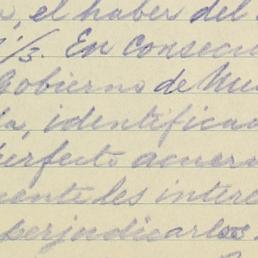 , el haber del
1/3. En consecu
Gobierno de Mu
la, identifica
perfecto acuer
mente les inter
perjudicarlos.